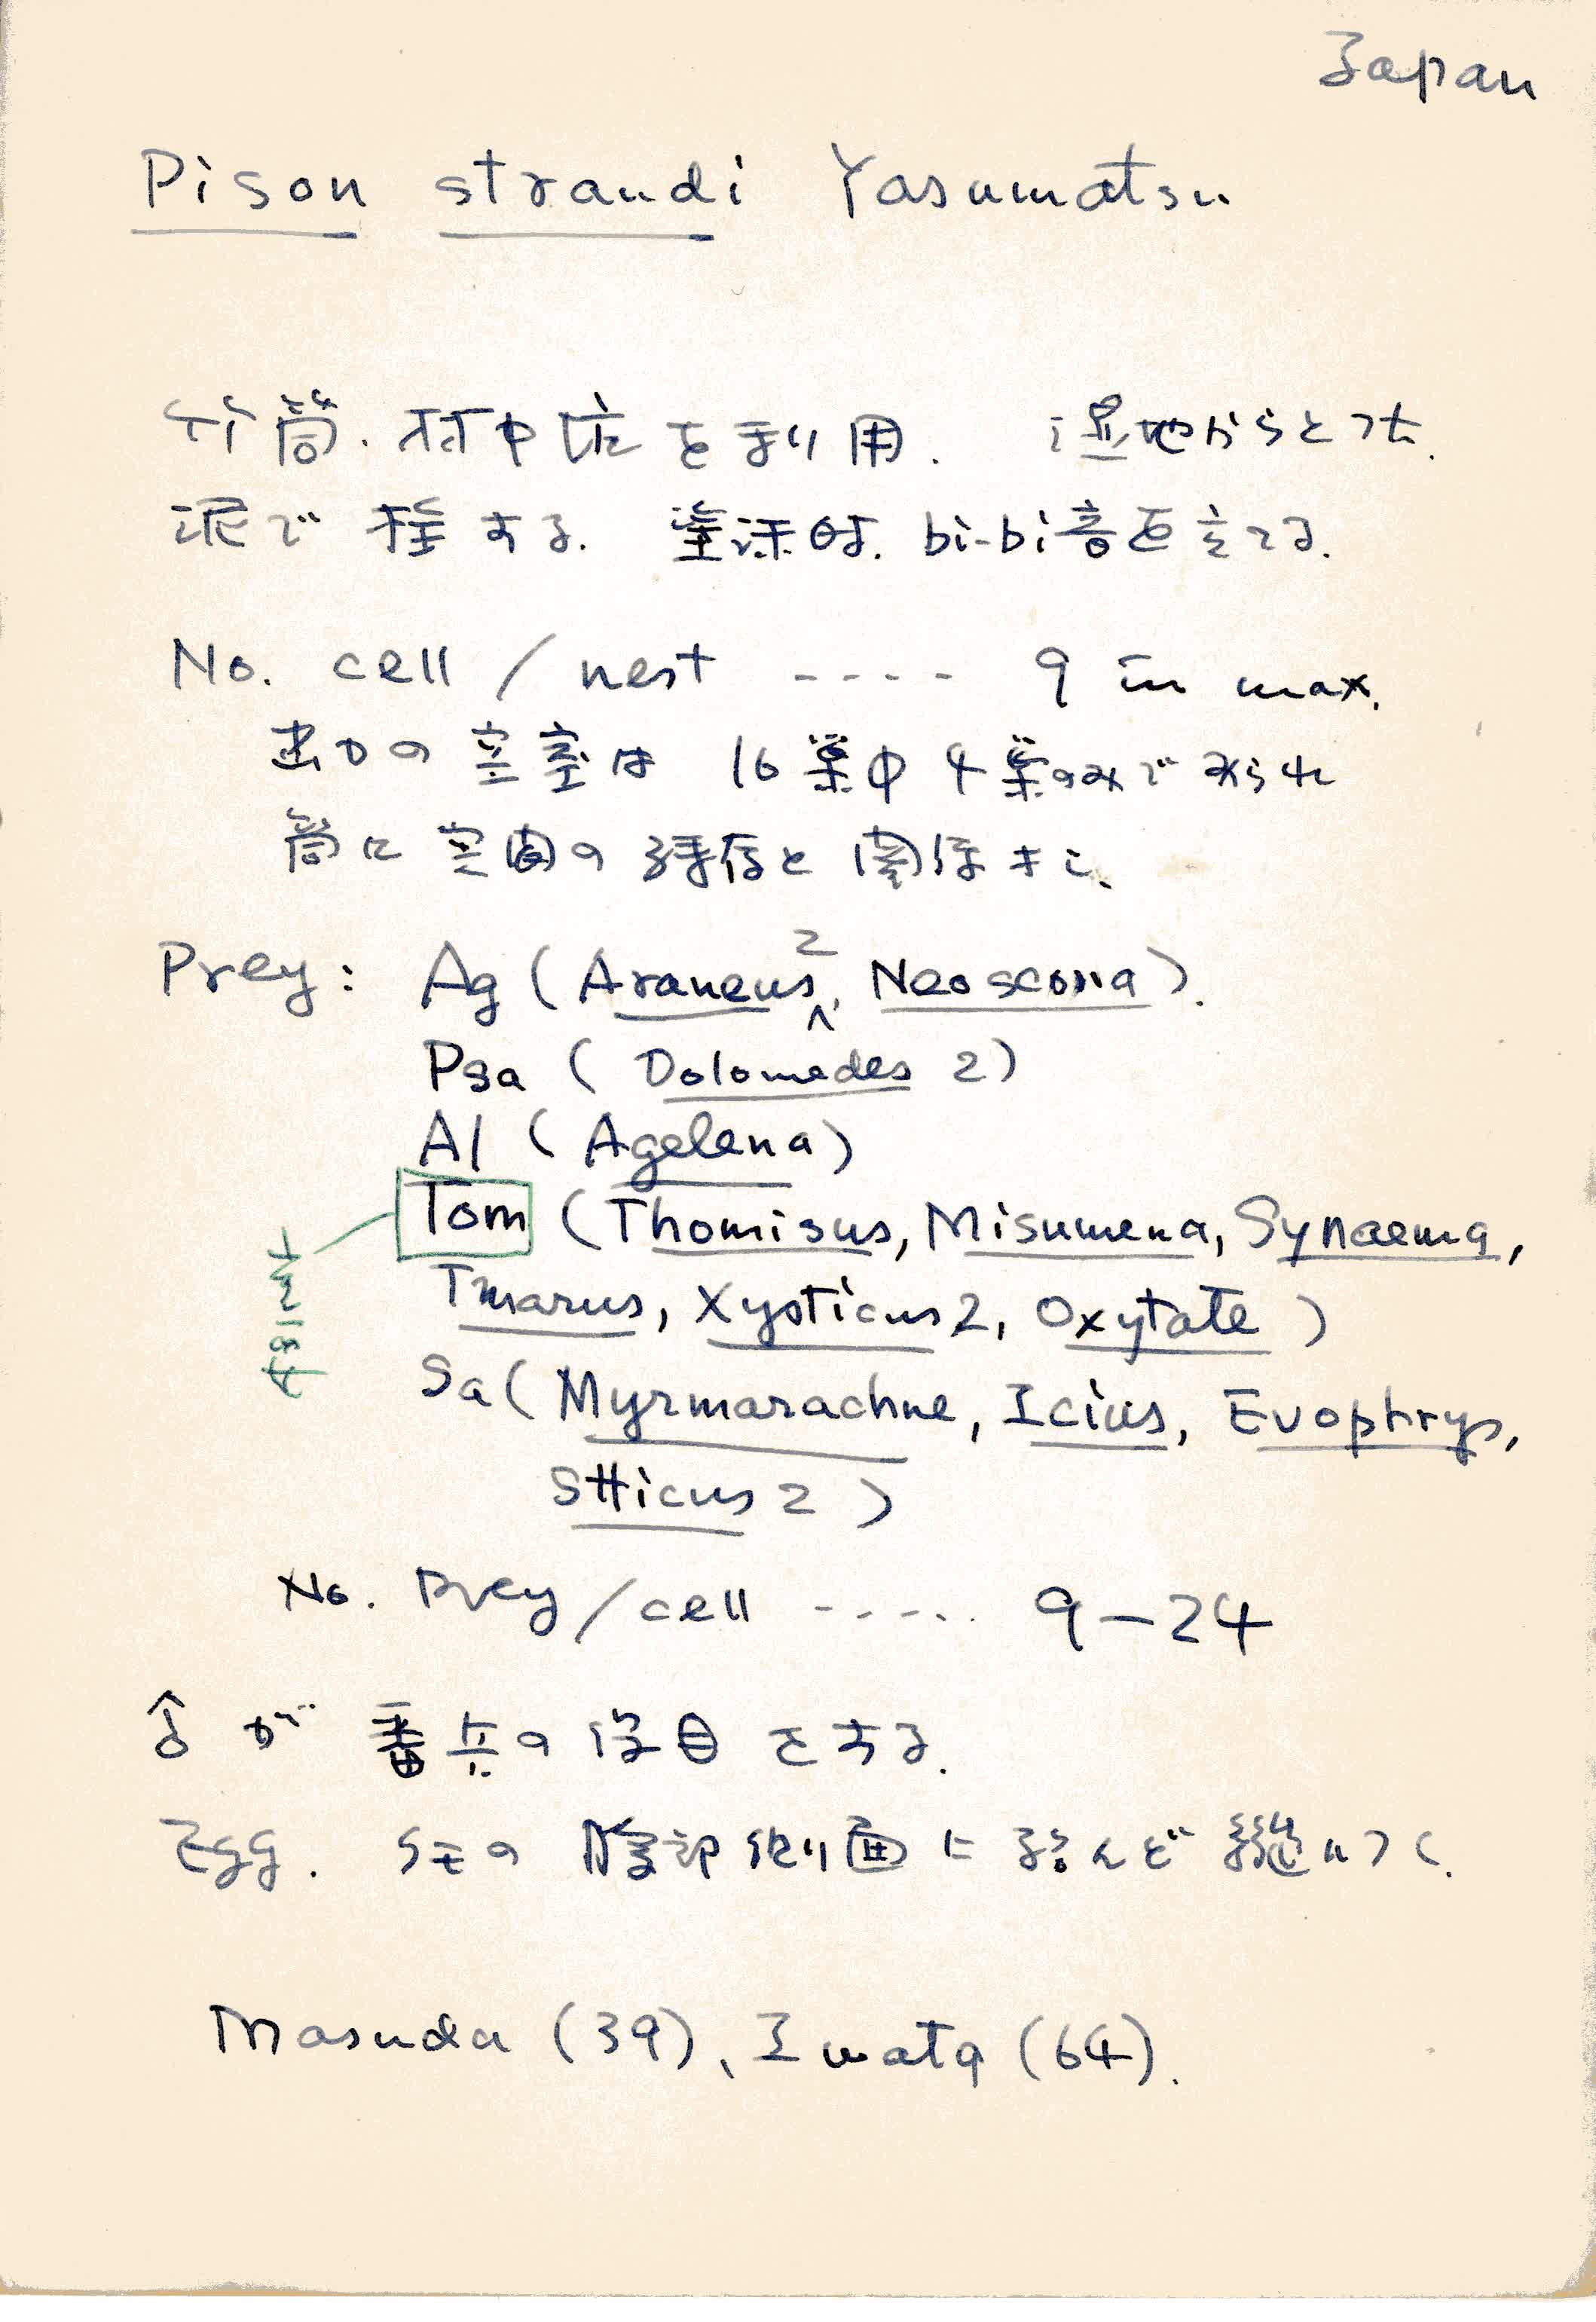 Japan
Pison strandi Yasumatsu
竹筒. 材中坑を利用. 湿地からとった.
泥で栓する. 塗沫時. bi-bi音を立てる.
No. cell / nest ---- 9 in max.
出口の空室は 16巣中 4巣のみでみられ
筒に空間の残存と関係なし、
Prey: Ag (Araneus 2, Neoscona).
Psa (Dolomedes 2)
Al (Agelena)
Tom (Thomisus, Misumena, Synaema,
Tmarus, Xysticus 2, Oxytate)
Sa (Myrmarachne, Icius, Evophrys,
Sitticus 2)
No. Prey / cell ----- 9-24
♂が 番兵の役目をする.
Egg. の 腹部側面に 殆んど 縦につく.
Masuda (39), Iwata (64).